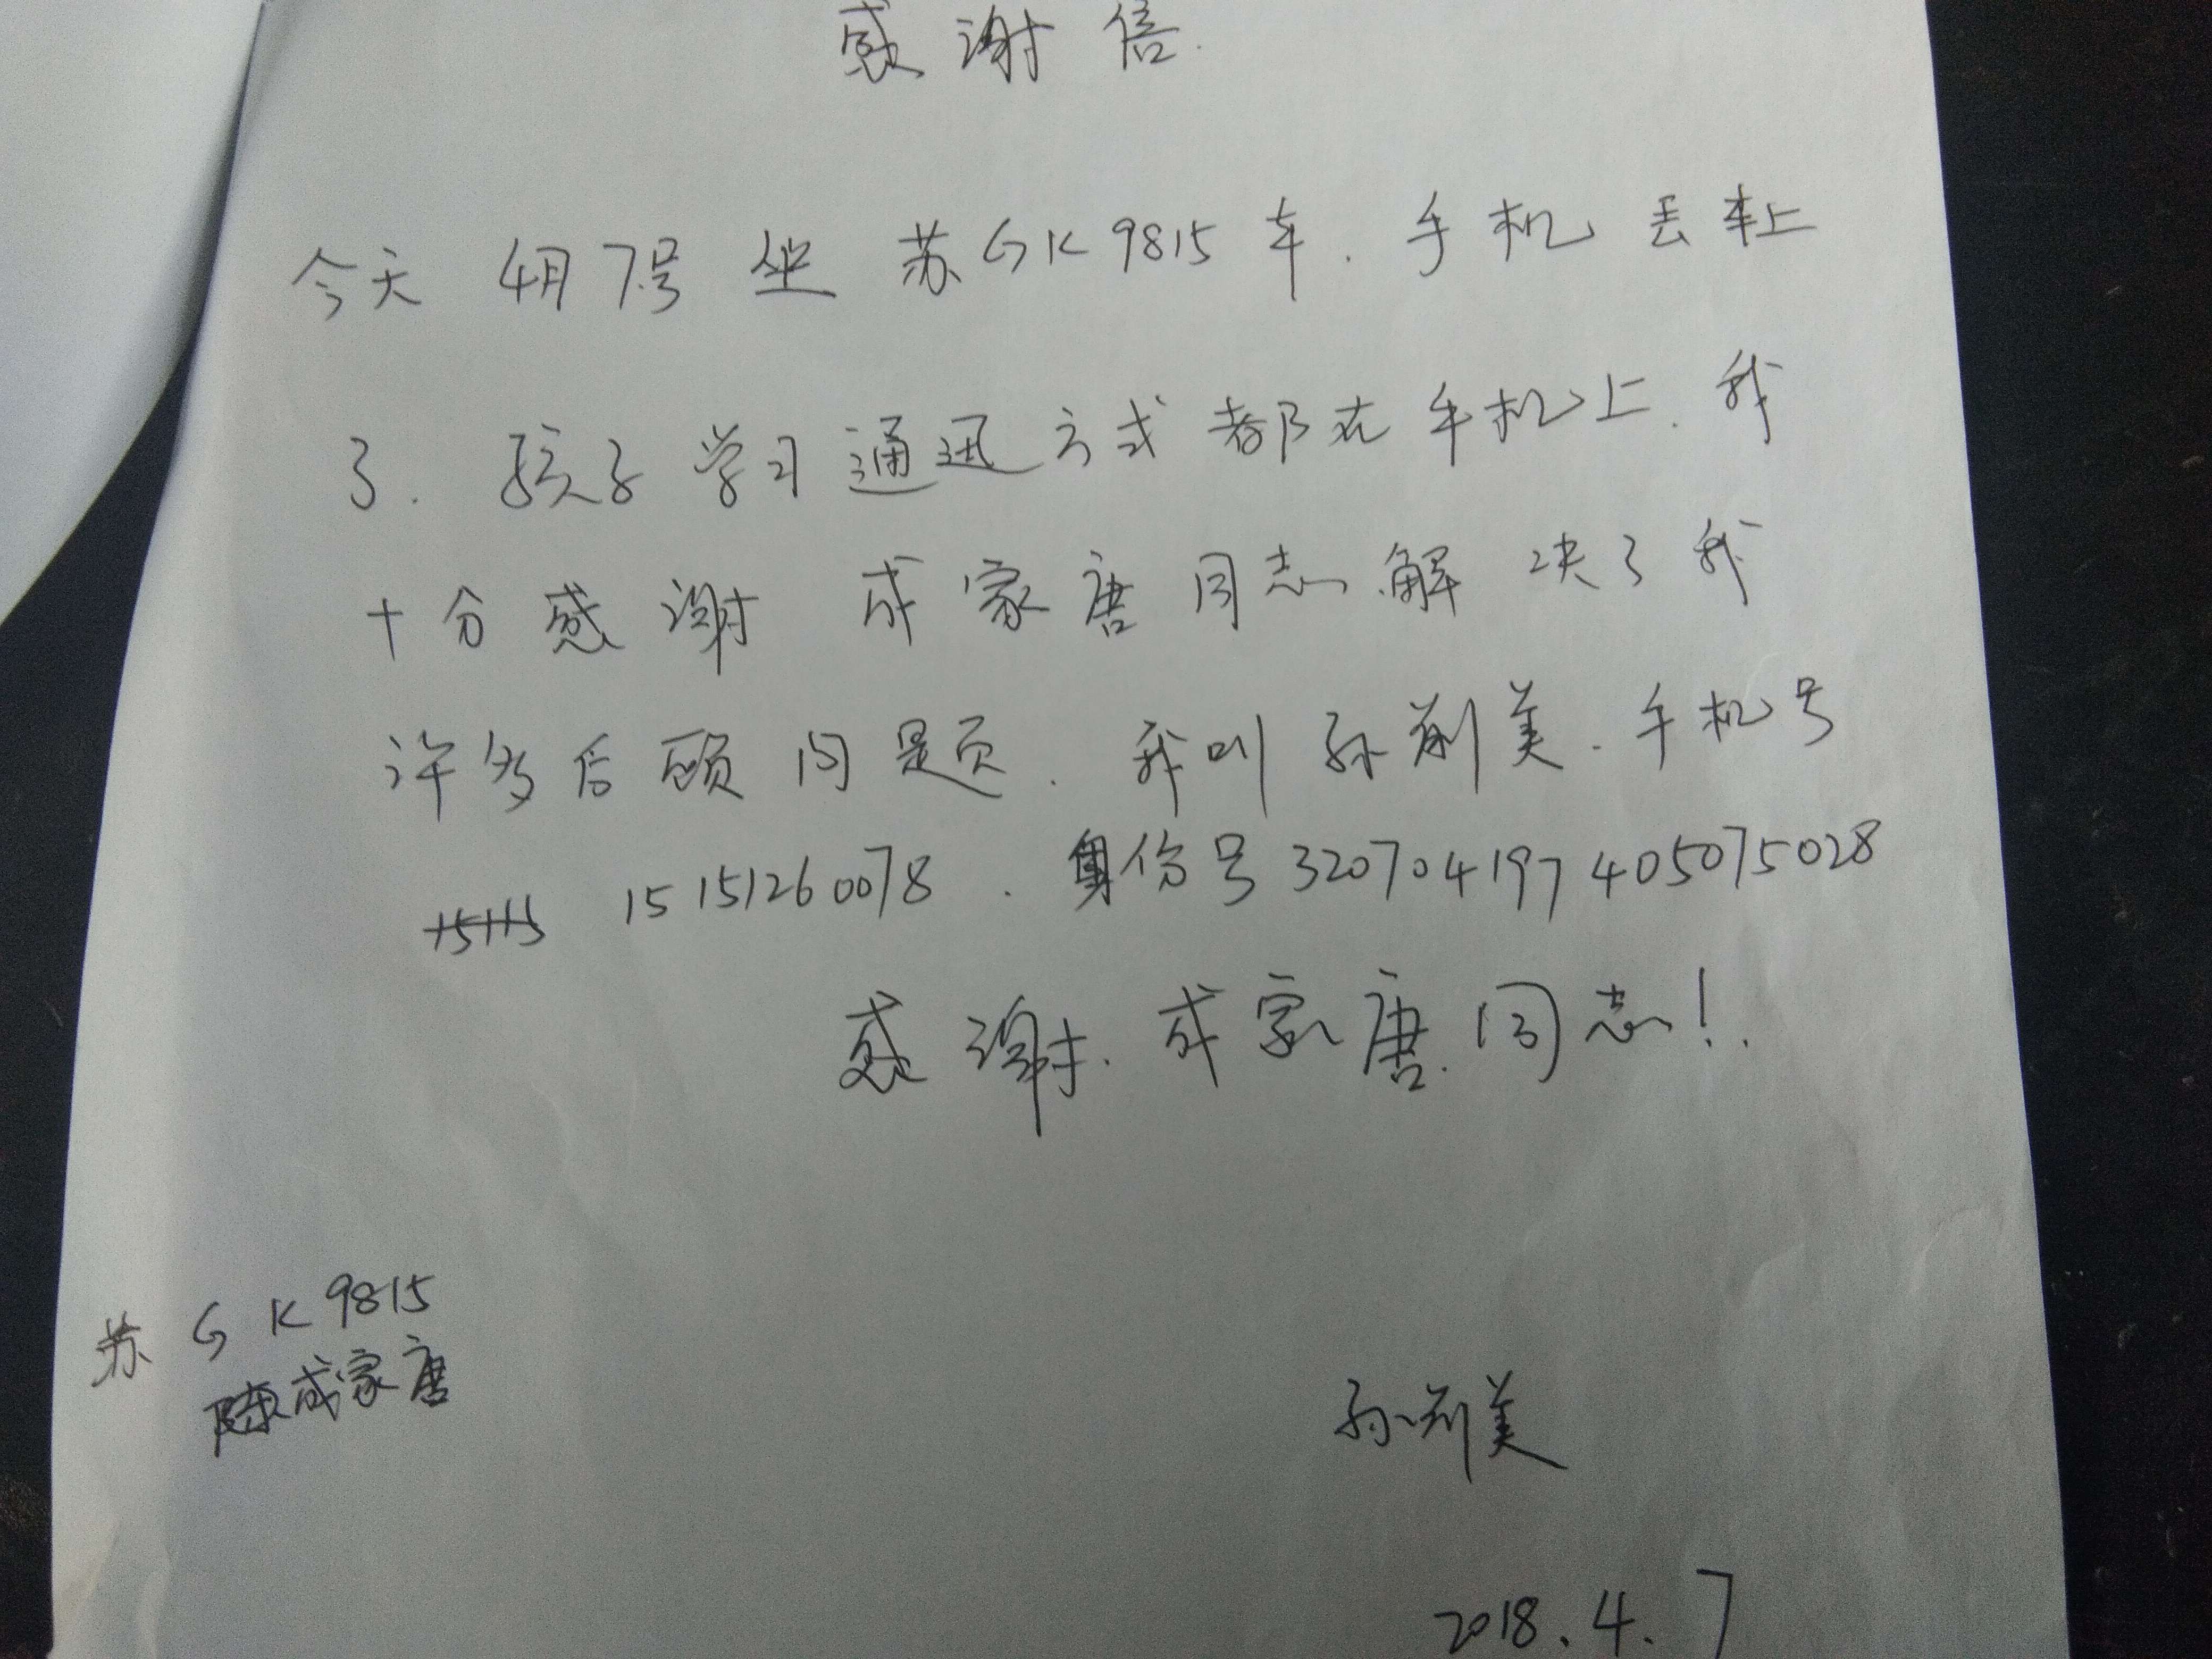 感谢信.
今天 4月7号 坐 苏GK9815车. 手机丢车上
了. 孩子学习通迅方式都在手机上. 我
十分感谢 成家唐同志解决了我
许多后顾问题. 我叫孙荆美. 手机号
15115 15151260078 . 身份号 320704197405075028
感谢. 成家唐同志!.
苏GK9815
陈成家唐
孙荆美
2018.4.7